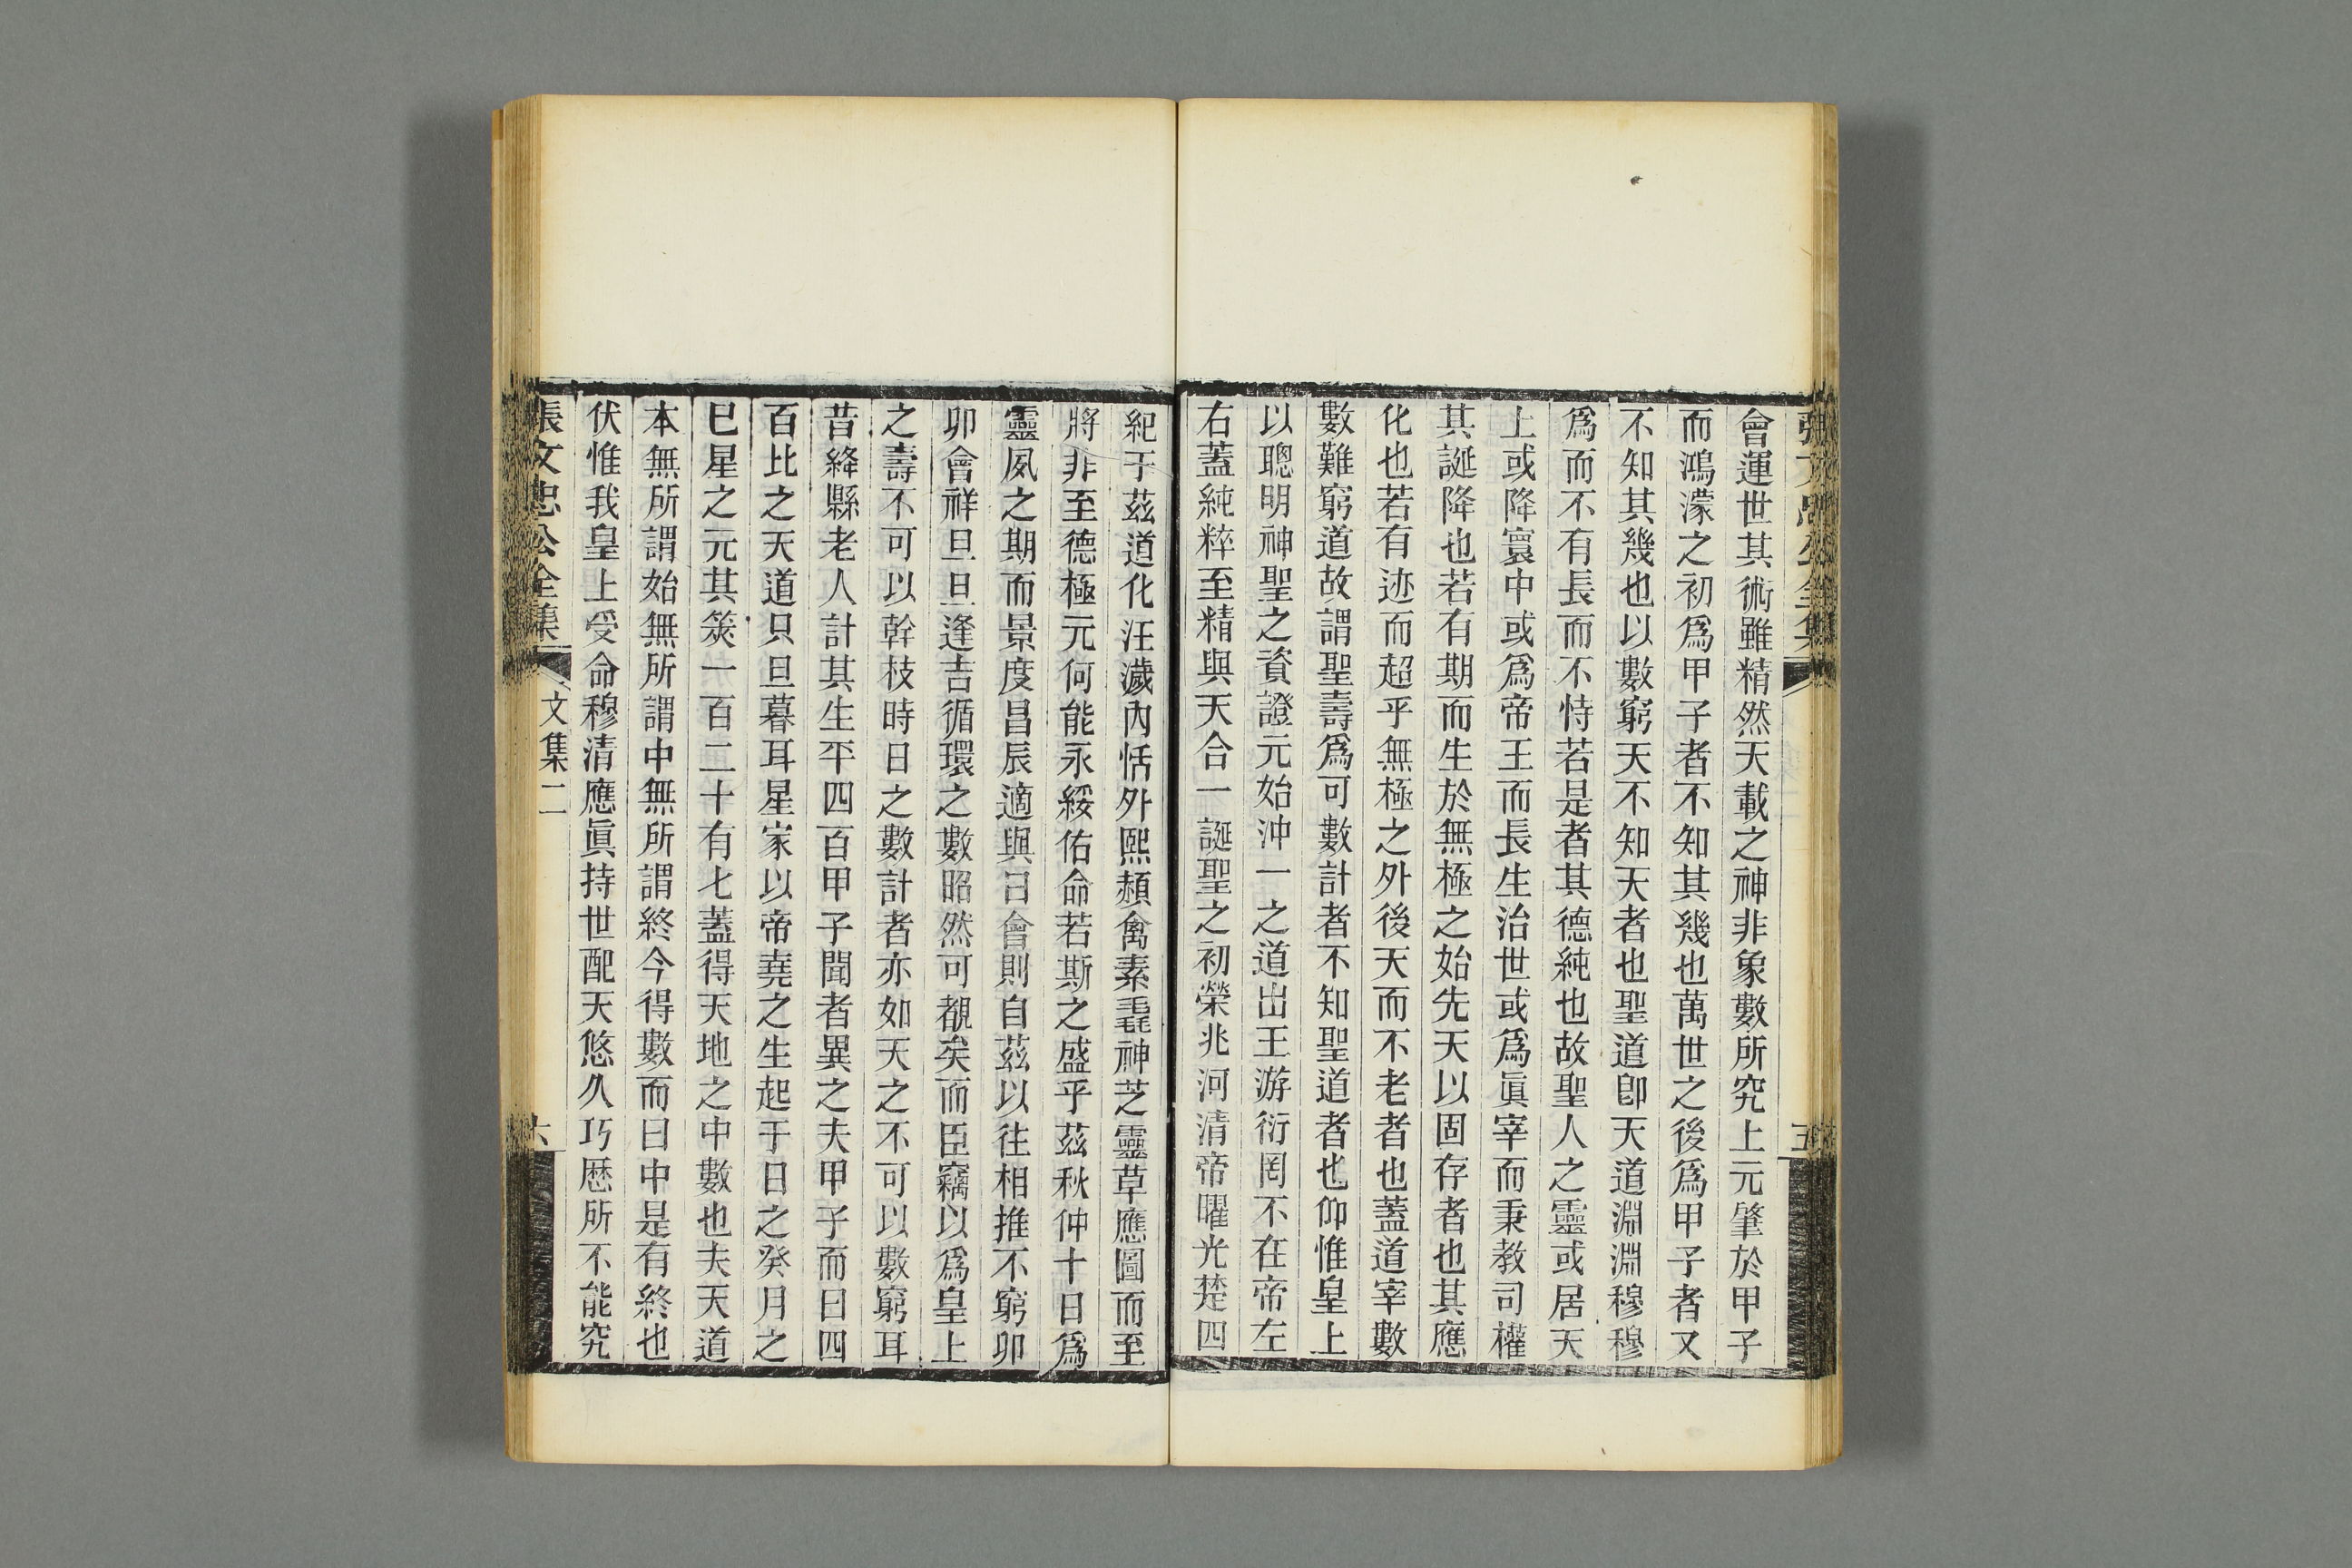 張文忠公全集
五
會運世其術雖精然天載之神非象數所究上元肇於甲子
而鴻濛之初爲甲子者不知其幾也萬世之後爲甲子者又
不知其幾也以數窮天不知天者也聖道卽天道淵淵穆穆
爲而不有長而不恃若是者其德純也故聖人之靈或居天
上或降寰中或爲帝王而長生治世或爲眞宰而秉敎司權
其誕降也若有期而生於無極之始先天以固存者也其應
化也若有迹而超乎無極之外後天而不老者也蓋道宰數
數難窮道故謂聖壽爲可數計者不知聖道者也仰惟皇上
以聰明神聖之資證元始沖一之道出王游衍罔不在帝左
右蓋純粹至精與天合一誕聖之初榮兆河清帝曜光楚四
紀于茲道化汪濊內恬外熙頳禽素毳神芝靈草應圖而至
將非至德極元何能永綏佑命若斯之盛乎茲秋仲十日爲
靈夙之期而景度昌辰適與日會則自茲以往相推不窮卯
卯會祥旦旦逢吉循環之數昭然可覩矣而臣竊以爲皇上
之壽不可以幹枝時日之數計者亦如天之不可以數窮耳
昔絳縣老人計其生平四百甲子聞者異之夫甲子而曰四
百比之天道只旦暮耳星家以帝堯之生起于日之癸月之
巳星之元其筴一百二十有七蓋得天地之中數也夫天道
本無所謂始無所謂中無所謂終今得數而曰中是有終也
伏惟我皇上受命穆清應眞持世配天悠久巧歷所不能究
張文忠公全集
文集二
六